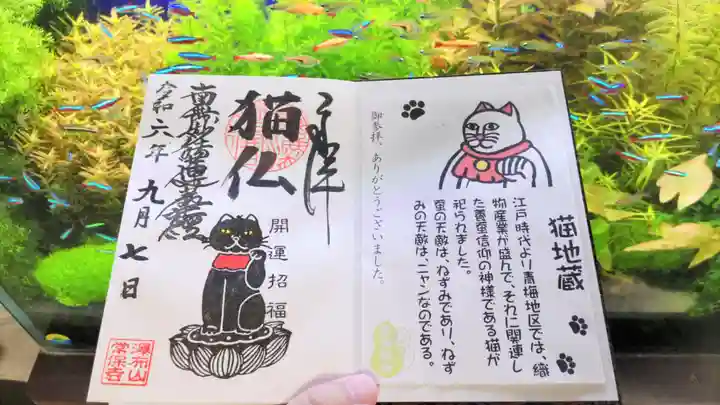 猫地蔵
江戸時代より青梅地区では、織
物産業が盛んで、それに関連し
た養蚕信仰の神様である猫が
祀られました。
蚕の天敵は、ねずみであり、ねず
みの天敵は、ニャンなのである。
御参拝、ありがとうございました。
奉拝
猫仏
開運招福
南無妙法蓮華経
令和六年九月七日